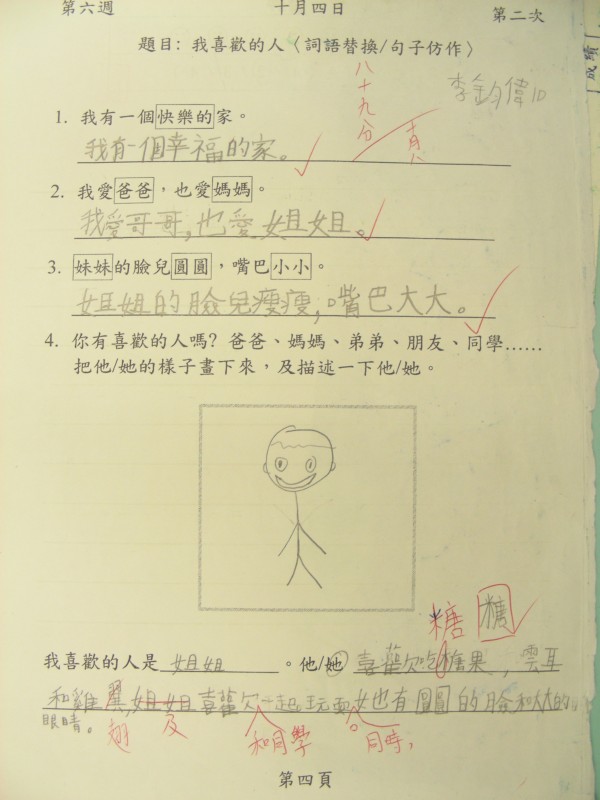 第六週 十月四日 第二次
成績
題目: 我喜歡的人〈詞語替換/句子仿作〉
李鈞偉10
八十九分
1. 我有一個快樂的家。
我有一個幸福的家。
2. 我愛爸爸,也愛媽媽。
我愛哥哥,也愛姐姐。
3. 妹妹的臉兒圓圓,嘴巴小小。
姐姐的臉兒瘦瘦,嘴巴大大。
4. 你有喜歡的人嗎? 爸爸、媽媽、弟弟、朋友、同學……
把他/她的樣子畫下來,及描述一下他/她。
糖 糖
我喜歡的人是 姐姐 。他/她 喜歡吃糖果,雲耳
和雞翼姐姐喜歡一起玩 她也有圓圓的臉和大大的
眼睛。
翅 及 和同學 。同時,
第四頁